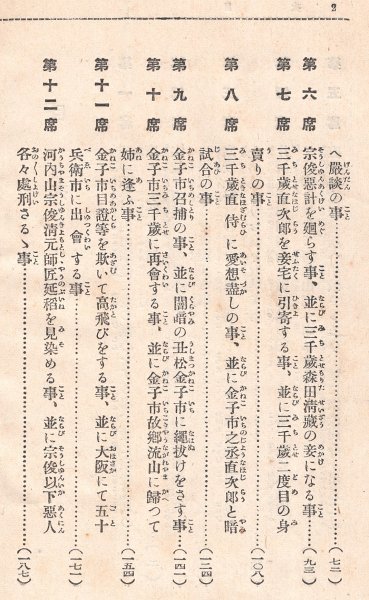 2
へ嚴談の事……(七二)
第六席
宗俊惡計を廻らす事、並に三千歲森田淸藏の妾になる事……(九三)
第七席
三千歲直次郎を妾宅に引寄する事、並に三千歲二度目の身
賣りの事……(一〇八)
第八席
三千歲直侍に愛想盡しの事、並に金子市之丞直次郎と暗
試合の事……(一二四)
第九席
金子市召捕の事、並に闇暗の丑松金子市に繩拔けをさす事……(一四一)
第十席
金子市三千歲に再會する事、並に金子市故鄕流山に歸つて
姉に逢ふ事……(一五四)
第十一席
金子市目證等を欺いて高飛びをする事、並に大阪にて五十
兵衞市に出會する事……(一七一)
第十二席
河內山宗俊淸元師匠延稻を見染める事、並に宗俊以下惡人
各々處刑さるゝ事……(一八七)